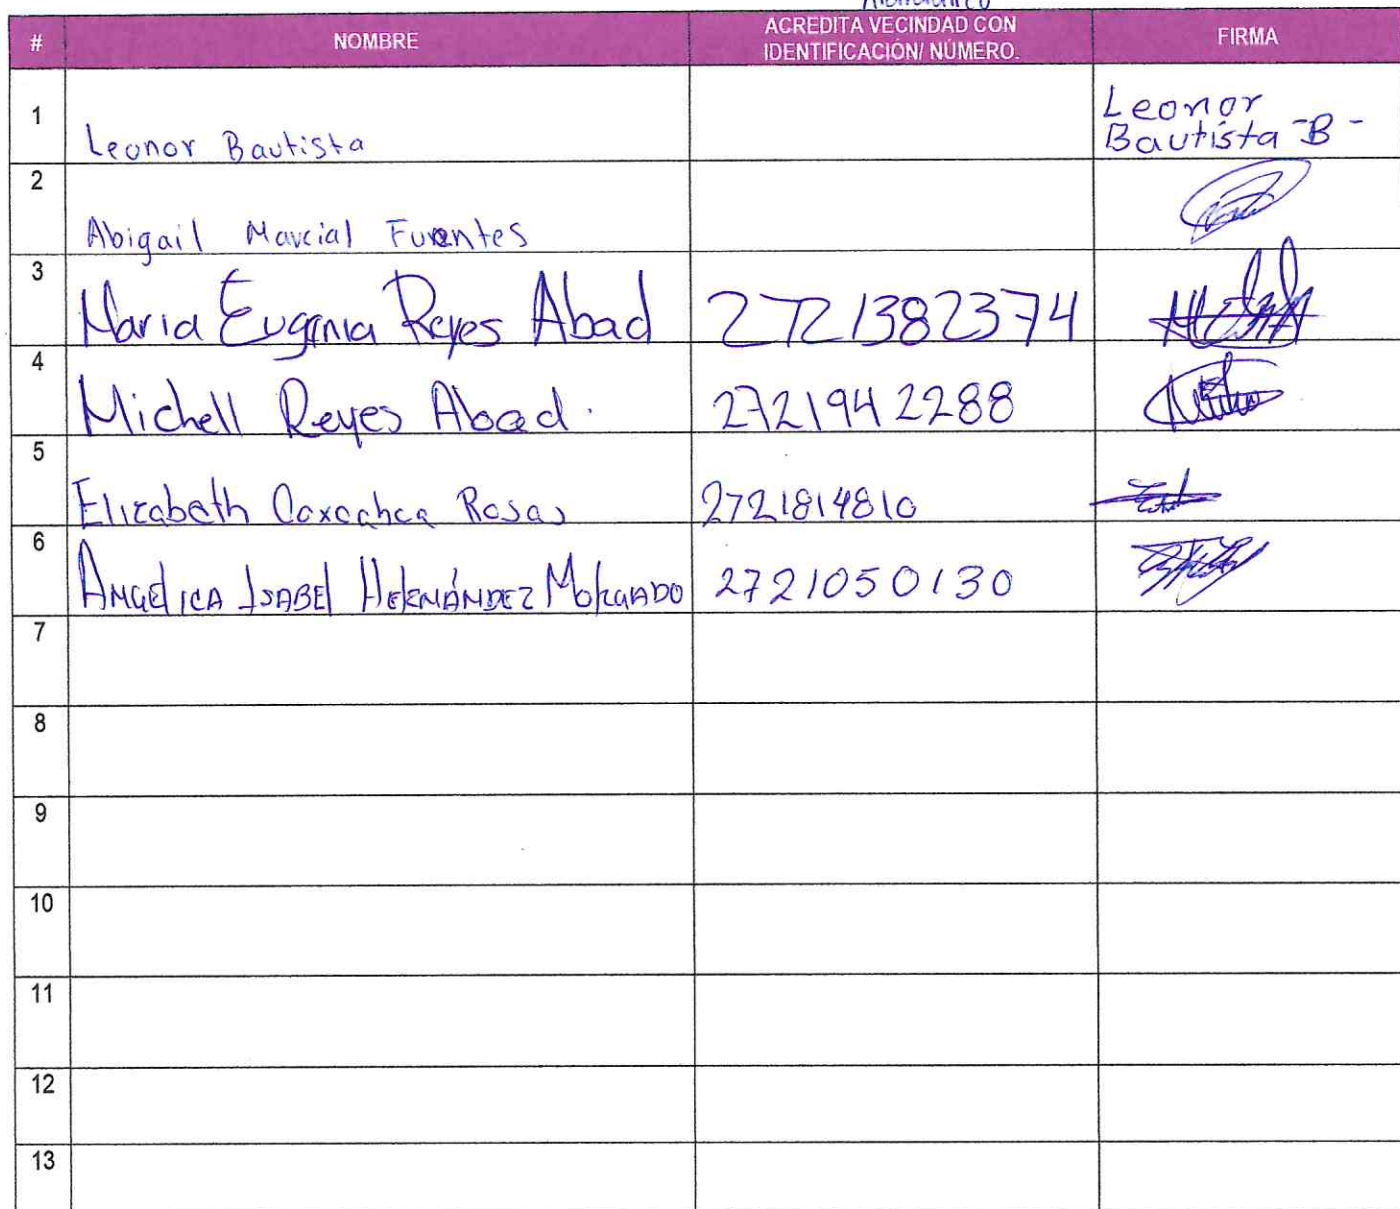 # NOMBRE ACREDITA VECINDAD CON IDENTIFICACIÓN/ NÚMERO. FIRMA
1 Leonor Bautista Leonor Bautista -B-
2 Abigail Marcial Fuentes
3 Maria Eugenia Reyes Abad 2721382374
4 Michell Reyes Abad. 2721942288
5 Elizabeth Rosas 2721814810
6 ANGÉLICA ISABEL HERNÁNDEZ MORGADO 2721050130
7
8
9
10
11
12
13